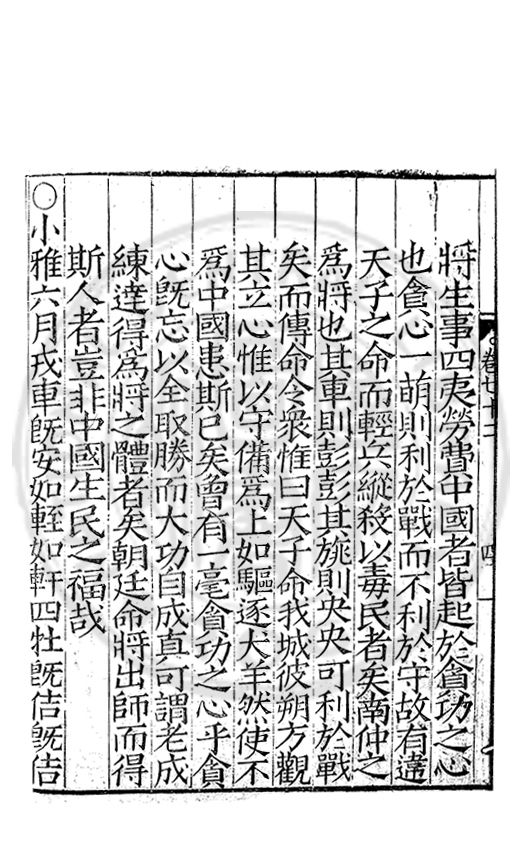 卷七十二
四
將生事四夷勞費中國者皆起於貪功之心
也貪心一萌則利於戰而不利於守故有違
天子之命而輕兵縱殺以毒民者矣南仲之
爲將也其車則彭彭其旂則央央可利於戰
矣而傳命令衆惟曰天子命我城彼朔方觀
其立心惟以守備爲上如驅逐犬羊然使不
爲中國患斯已矣曾有一毫貪功之心乎貪
心旣忘以全取勝而大功自成真可謂老成
練達得爲將之體者矣朝廷命將出師而得
斯人者豈非中國生民之福哉
○小雅六月戎車旣安如輊如軒四牡旣佶旣佶